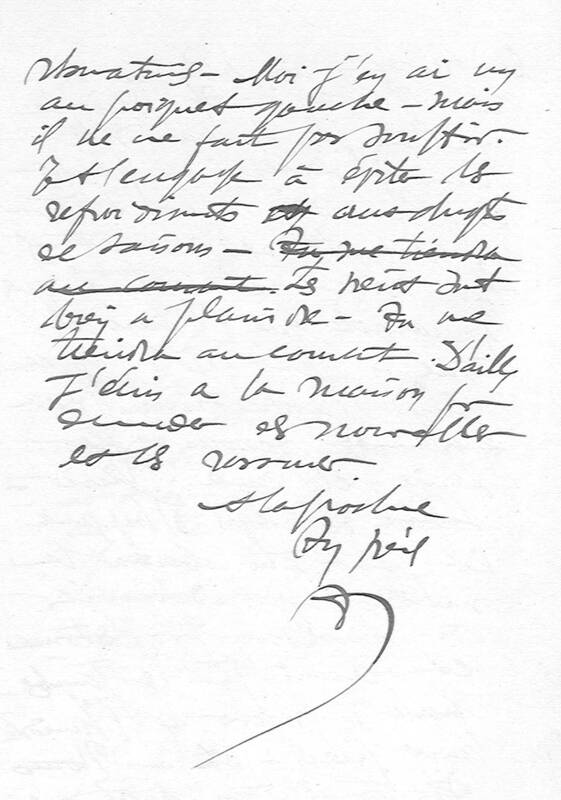 Moi j'en ai un
au poignet gauche - mais
il ne me fait pas souffrir.
Je t'engage à éviter les
refroidissements aux changements
de saisons - Tu me tiendras
au courant. Les
bien à plaindre - Tu me
tiendras au courant. D'aill
J'écris à la maison pr
demander des nouvelles
et les rassurer
A la prochaine
Ton père